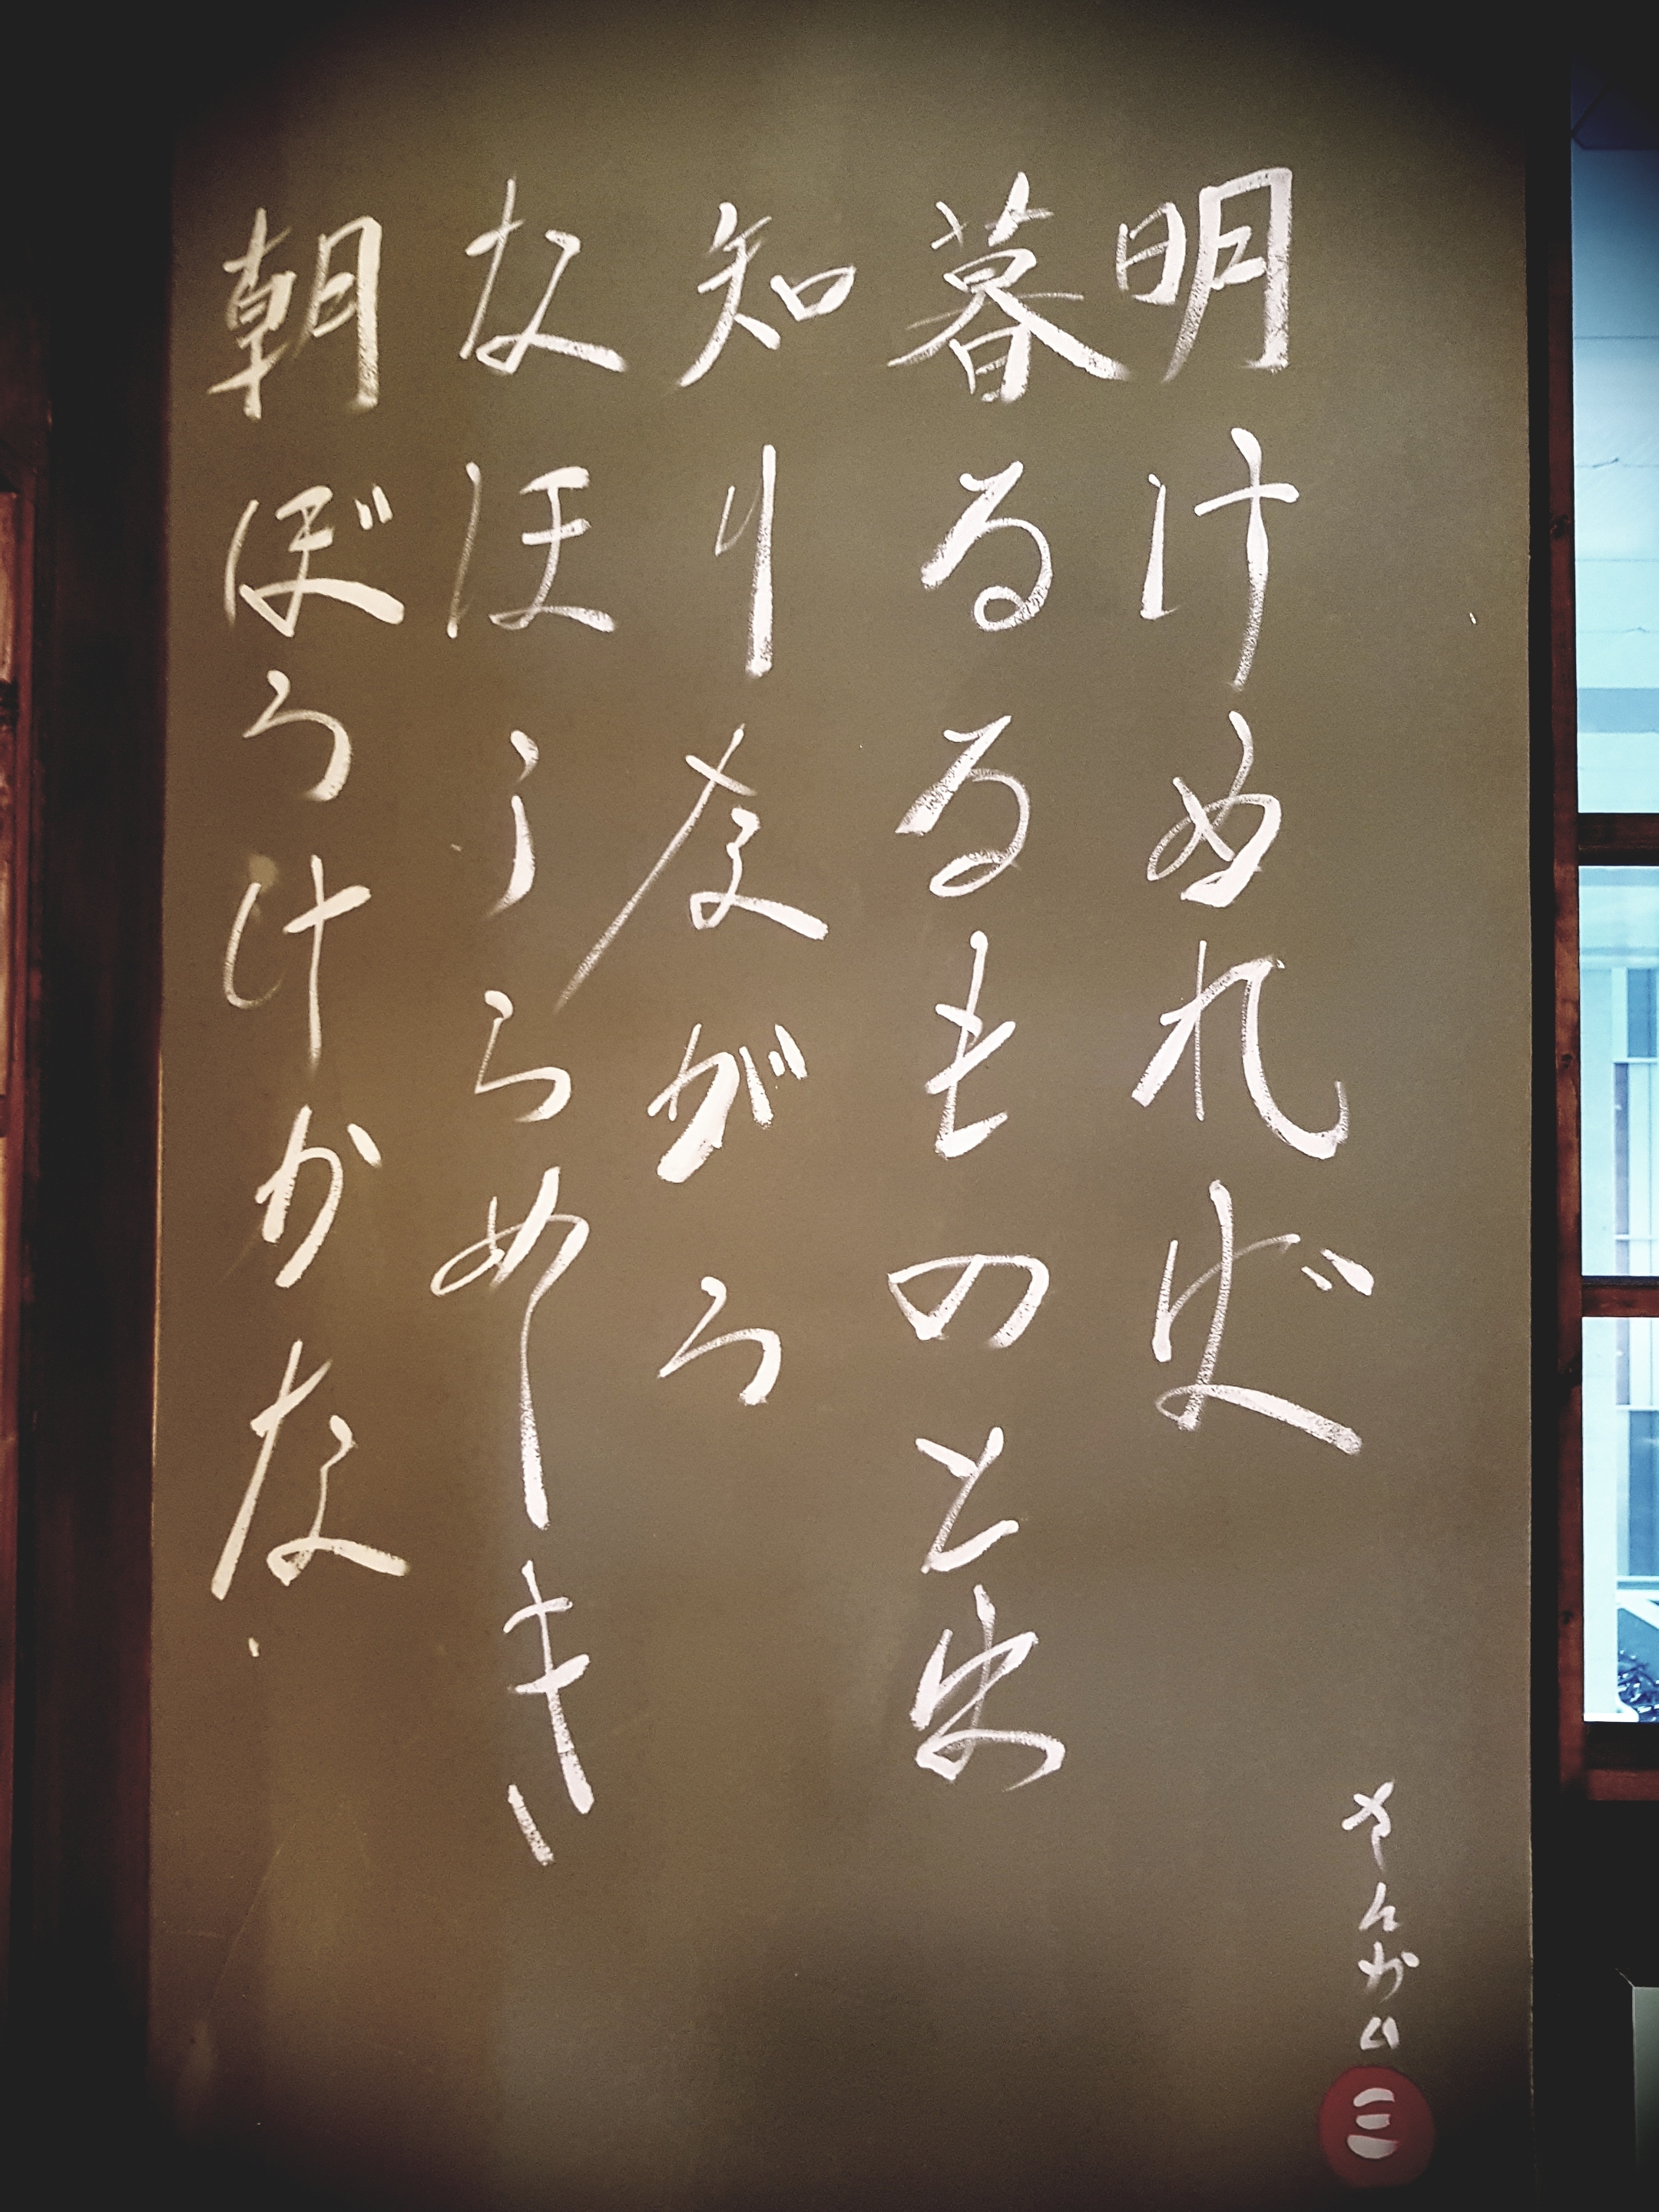 明けぬれば
暮るるものとは
知りながら
なほうらめしき
朝ぼらけかな
三